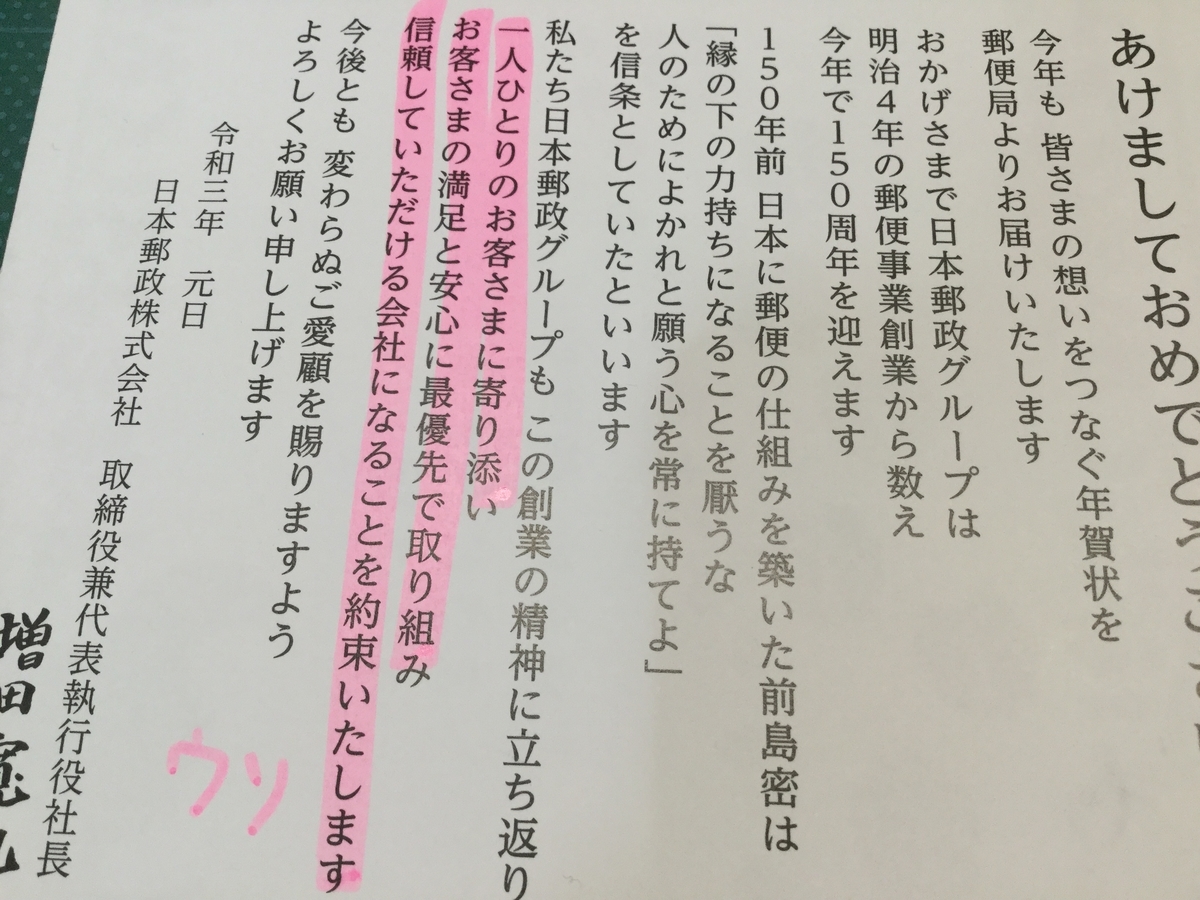 あけましておめでとうござい
今年も 皆さまの想いをつなぐ年賀状を
郵便局よりお届けいたします
おかげさまで日本郵政グループは
明治4年の郵便事業創業から数え
今年で150周年を迎えます
150年前 日本に郵便の仕組みを築いた前島密は
「縁の下の力持ちになることを厭うな
人のためによかれと願う心を常に持てよ」
を信条としていたといいます
私たち日本郵政グループも この創業の精神に立ち返り
一人ひとりのお客さまに寄り添い
お客さまの満足と安心に最優先で取り組み
信頼していただける会社になることを約束いたします
今後とも 変わらぬご愛顧を賜りますよう
よろしくお願い申し上げます
令和三年 元日
日本郵政株式会社 取締役兼代表執行役社長
増田寛也
ウソ